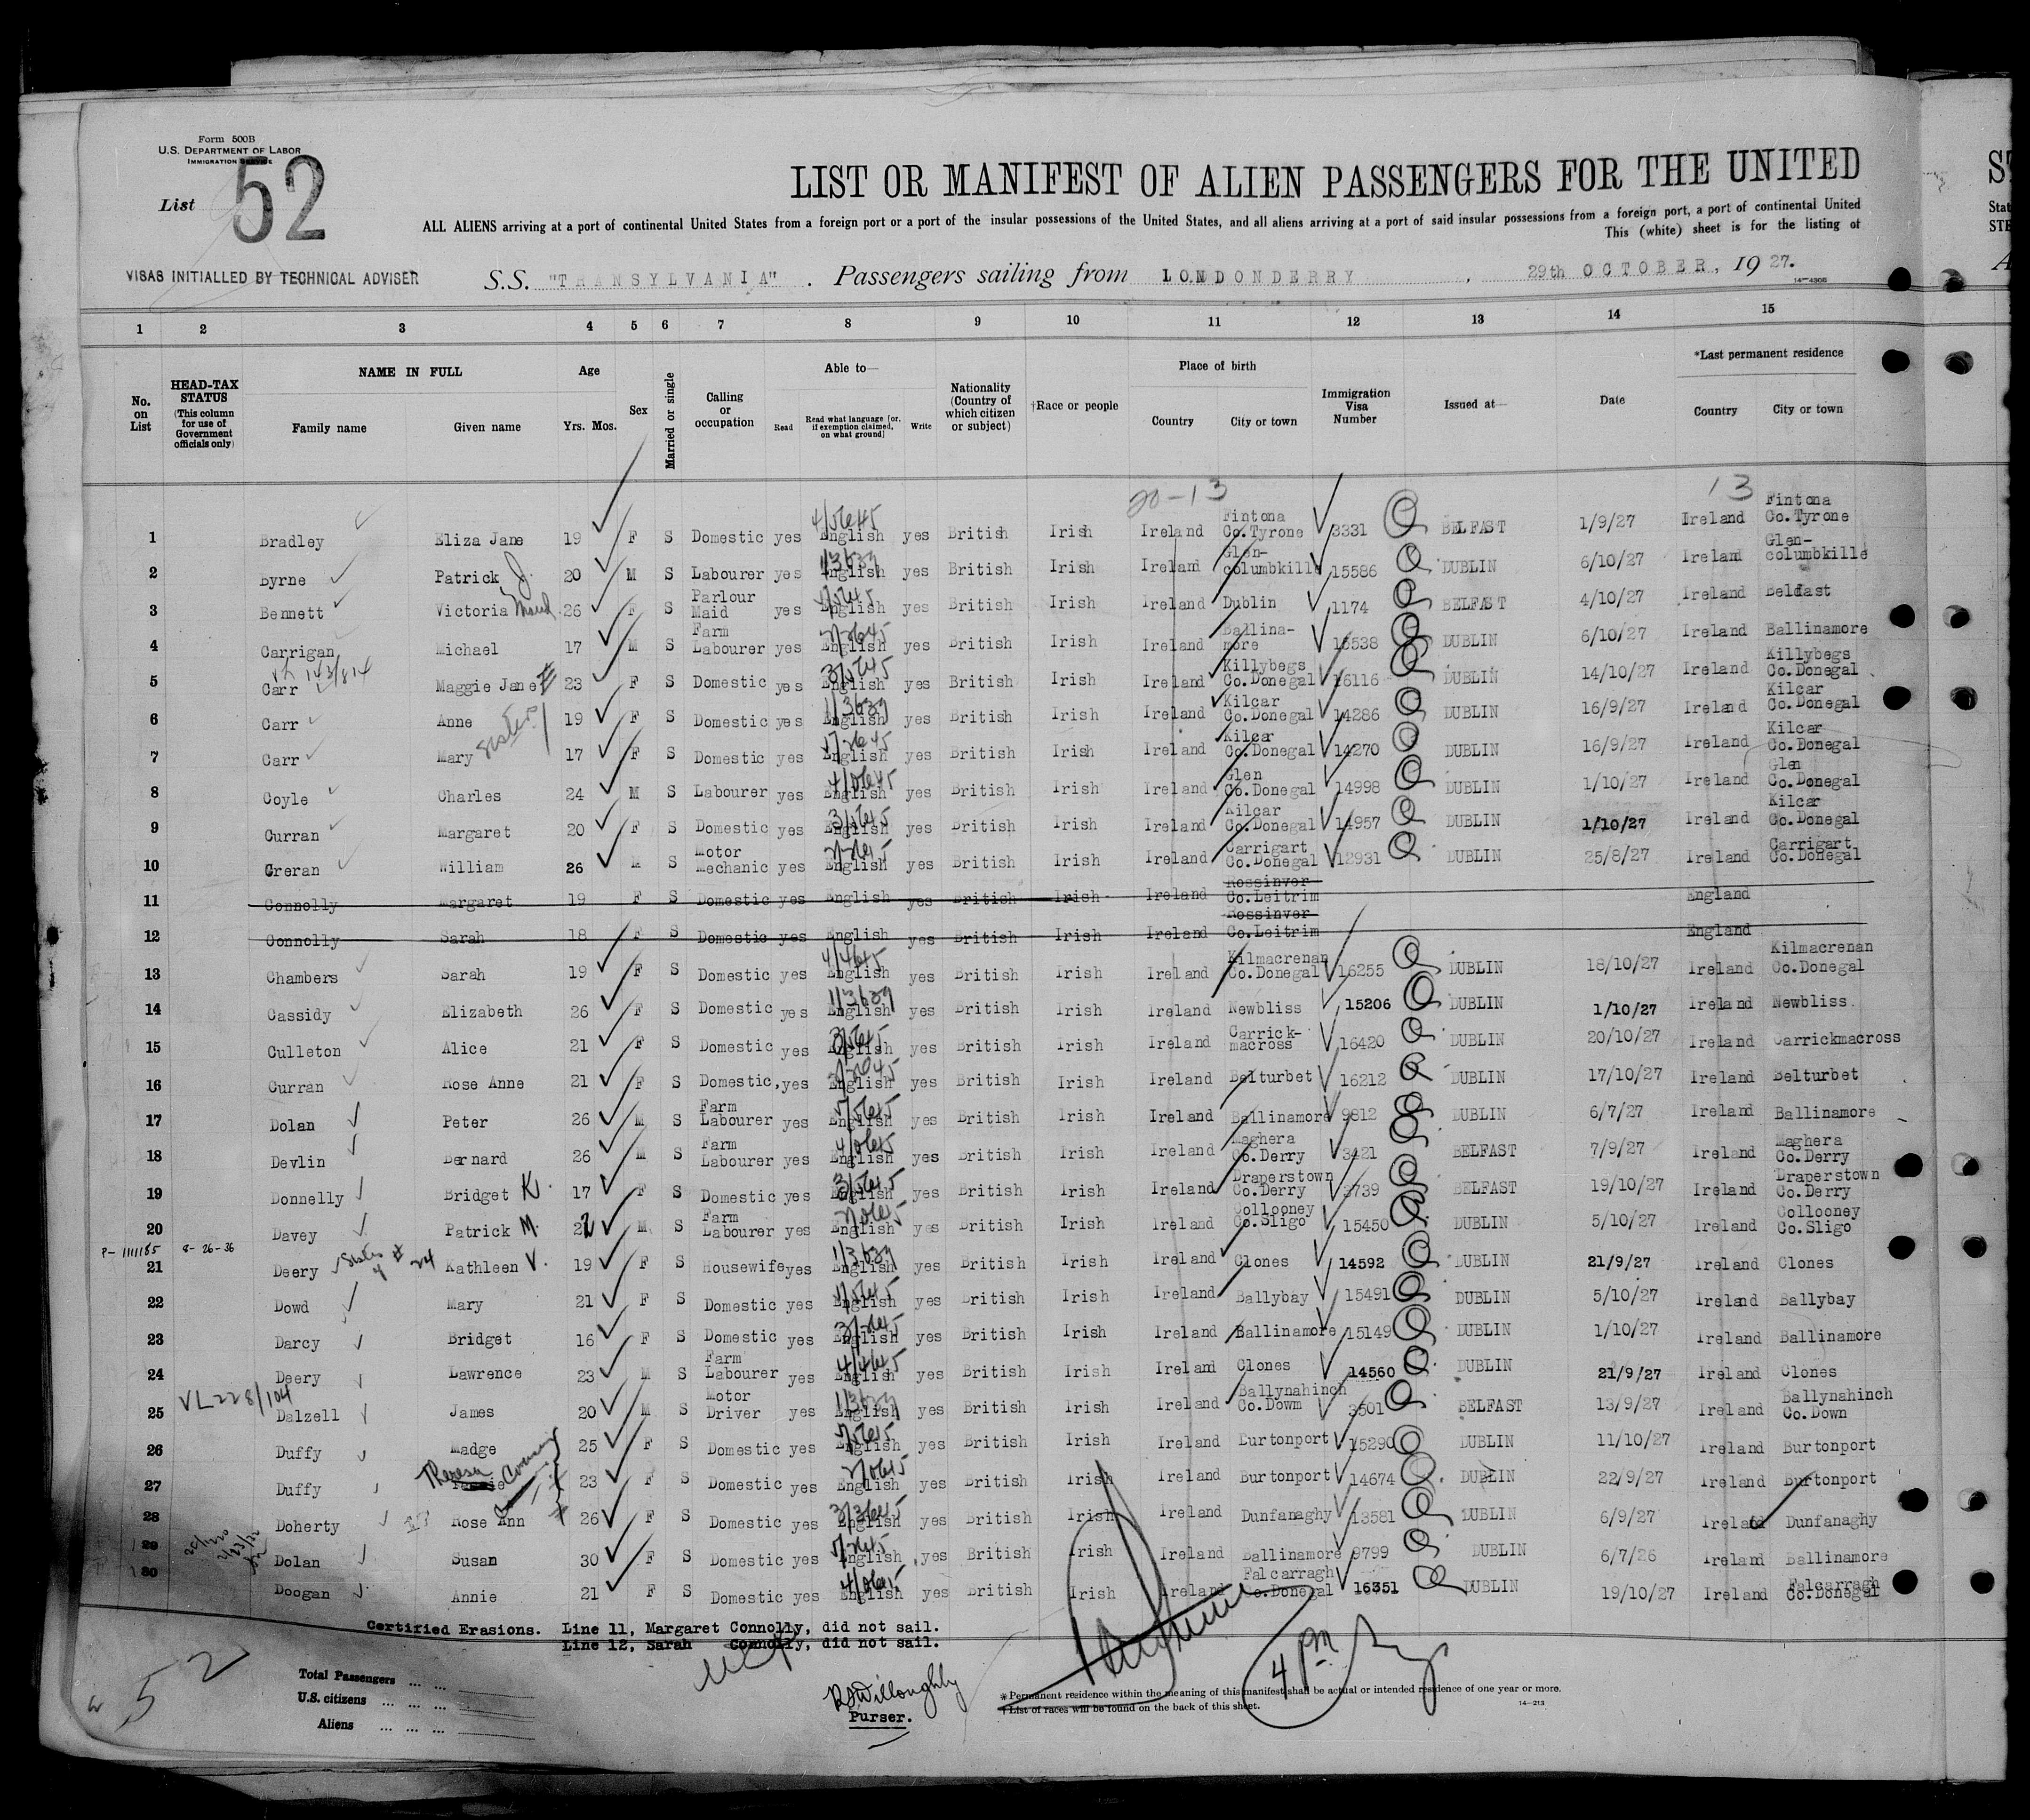 Form 500B
U.S. DEPARTMENT OF LABOR
IMMIGRATION SERVICE
List 52
LIST OR MANIFEST OF ALIEN PASSENGERS FOR THE UNITED
ALL ALIENS arriving at a port of continental United States from a foreign port or a port of the insular possessions of the United States, and all aliens arriving at a port of said insular possessions from a foreign port, a port of continental United
This (white) sheet is for the listing of
VISAS INITIALLED BY TECHNICAL ADVISER
S.S. "TRANSYLVANIA". Passengers sailing from LONDONDERRY, 29th OCTOBER, 1927.
14—4306
1 2 3 4 5 6 7 8 9 10 11 12 13 14 15
No. on List
HEAD-TAX STATUS (This column for use of Government officials only)
NAME IN FULL
Family name Given name
Age
Yrs. Mos.
Sex
Married or single
Calling or occupation
Able to—
Read
Read what language [or, if exemption claimed, on what ground]
Write
Nationality (Country of which citizen or subject)
†Race or people
Place of birth
Country City or town
Immigration Visa Number
Issued at—
Date
*Last permanent residence
Country City or town
20-13 13
1 Bradley Eliza Jane 19 F S Domestic yes English yes British Irish Ireland Fintona Co.Tyrone 3331 BELFAST 1/9/27 Ireland Fintona Co.Tyrone
2 Byrne Patrick J. 20 M S Labourer yes English yes British Irish Ireland Glen-columbkille 15586 DUBLIN 6/10/27 Ireland Glen-columbkille
3 Bennett Victoria Maud 26 F S Parlour Maid yes English yes British Irish Ireland Dublin 1174 BELFAST 4/10/27 Ireland Belfast
4 Carrigan Michael 17 M S Farm Labourer yes English yes British Irish Ireland Ballina-more 15538 DUBLIN 6/10/27 Ireland Ballinamore
5 Carr Maggie Jane 23 F S Domestic yes English yes British Irish Ireland Killybegs Co.Donegal 16116 DUBLIN 14/10/27 Ireland Killybegs Co.Donegal
6 Carr Anne 19 F S Domestic yes English yes British Irish Ireland Kilcar Co.Donegal 14286 DUBLIN 16/9/27 Ireland Kilcar Co.Donegal
sisters
7 Carr Mary 17 F S Domestic yes English yes British Irish Ireland Kilcar Co.Donegal 14270 DUBLIN 16/9/27 Ireland Kilcar Co.Donegal
8 Coyle Charles 24 M S Labourer yes English yes British Irish Ireland Glen Co.Donegal 14998 DUBLIN 1/10/27 Ireland Glen Co.Donegal
9 Curran Margaret 20 F S Domestic yes English yes British Irish Ireland Kilcar Co.Donegal 14957 DUBLIN 1/10/27 Ireland Kilcar Co.Donegal
10 Creran William 26 M S Motor Mechanic yes English yes British Irish Ireland Carrigart Co.Donegal 12931 DUBLIN 25/8/27 Ireland Carrigart Co.Donegal
11 Connolly Margaret 19 F S Domestic yes English yes British Irish Ireland Rossinver Co.Leitrim England
12 Connolly Sarah 18 F S Domestic yes English yes British Irish Ireland Rossinver Co.Leitrim England
13 Chambers Sarah 19 F S Domestic yes English yes British Irish Ireland Kilmacrenan Co.Donegal 16255 DUBLIN 18/10/27 Ireland Kilmacrenan Co.Donegal
14 Cassidy Elizabeth 26 F S Domestic yes English yes British Irish Ireland Newbliss 15206 DUBLIN 1/10/27 Ireland Newbliss.
15 Culleton Alice 21 F S Domestic yes English yes British Irish Ireland Carrick-macross 16420 DUBLIN 20/10/27 Ireland Carrickmacross
16 Curran Rose Anne 21 F S Domestic, yes English yes British Irish Ireland Belturbet 16212 DUBLIN 17/10/27 Ireland Belturbet
17 Dolan Peter 26 M S Farm Labourer yes English yes British Irish Ireland Ballinamore 9812 DUBLIN 6/7/27 Ireland Ballinamore
18 Devlin Bernard 26 M S Farm Labourer yes English yes British Irish Ireland Maghera Co.Derry 3421 BELFAST 7/9/27 Ireland Maghera Co.Derry
19 Donnelly Bridget K. 17 F S Domestic yes English yes British Irish Ireland Draperstown Co.Derry 3739 BELFAST 19/10/27 Ireland Draperstown Co.Derry
20 Davey Patrick M. 22 M S Farm Labourer yes English yes British Irish Ireland Collooney Co.Sligo 15450 DUBLIN 5/10/27 Ireland Collooney Co.Sligo
P-1111185 8-26-36
21 Deery Sister of # 24 Kathleen V. 19 F S Housewife yes English yes British Irish Ireland Clones 14592 DUBLIN 21/9/27 Ireland Clones
22 Dowd Mary 21 F S Domestic yes English yes British Irish Ireland Ballybay 15491 DUBLIN 5/10/27 Ireland Ballybay
23 Darcy Bridget 16 F S Domestic yes English yes British Irish Ireland Ballinamore 15149 DUBLIN 1/10/27 Ireland Ballinamore
24 Deery Lawrence 23 M S Farm Labourer yes English yes British Irish Ireland Clones 14560 DUBLIN 21/9/27 Ireland Clones
VL228/104
25 Dalzell James 20 M S Motor Driver yes English yes British Irish Ireland Ballynahinch Co.Down 3501 BELFAST 13/9/27 Ireland Ballynahinch Co.Down
26 Duffy Madge 25 F S Domestic yes English yes British Irish Ireland Burtonport 15290 DUBLIN 11/10/27 Ireland Burtonport
27 Duffy Theresa 23 F S Domestic yes English yes British Irish Ireland Burtonport 14674 DUBLIN 22/9/27 Ireland Burtonport
28 Doherty Rose Ann 26 F S Domestic yes English yes British Irish Ireland Dunfanaghy 13581 DUBLIN 6/9/27 Ireland Dunfanaghy
29 Dolan Susan 30 F S Domestic yes English yes British Irish Ireland Ballinamore 9799 DUBLIN 6/7/26 Ireland Ballinamore
30 Doogan Annie 21 F S Domestic yes English yes British Irish Ireland Falcarragh Co.Donegal 16351 DUBLIN 19/10/27 Ireland Falcarragh Co.Donegal
Certified Erasions. Line 11, Margaret Connolly, did not sail.
Line 12, Sarah Connolly, did not sail.
52
Total Passengers
U.S. citizens
Aliens
Willoughby
Purser.
4 PM
*Permanent residence within the meaning of this manifest shall be actual or intended residence of one year or more.
†List of races will be found on the back of this sheet.
14—213